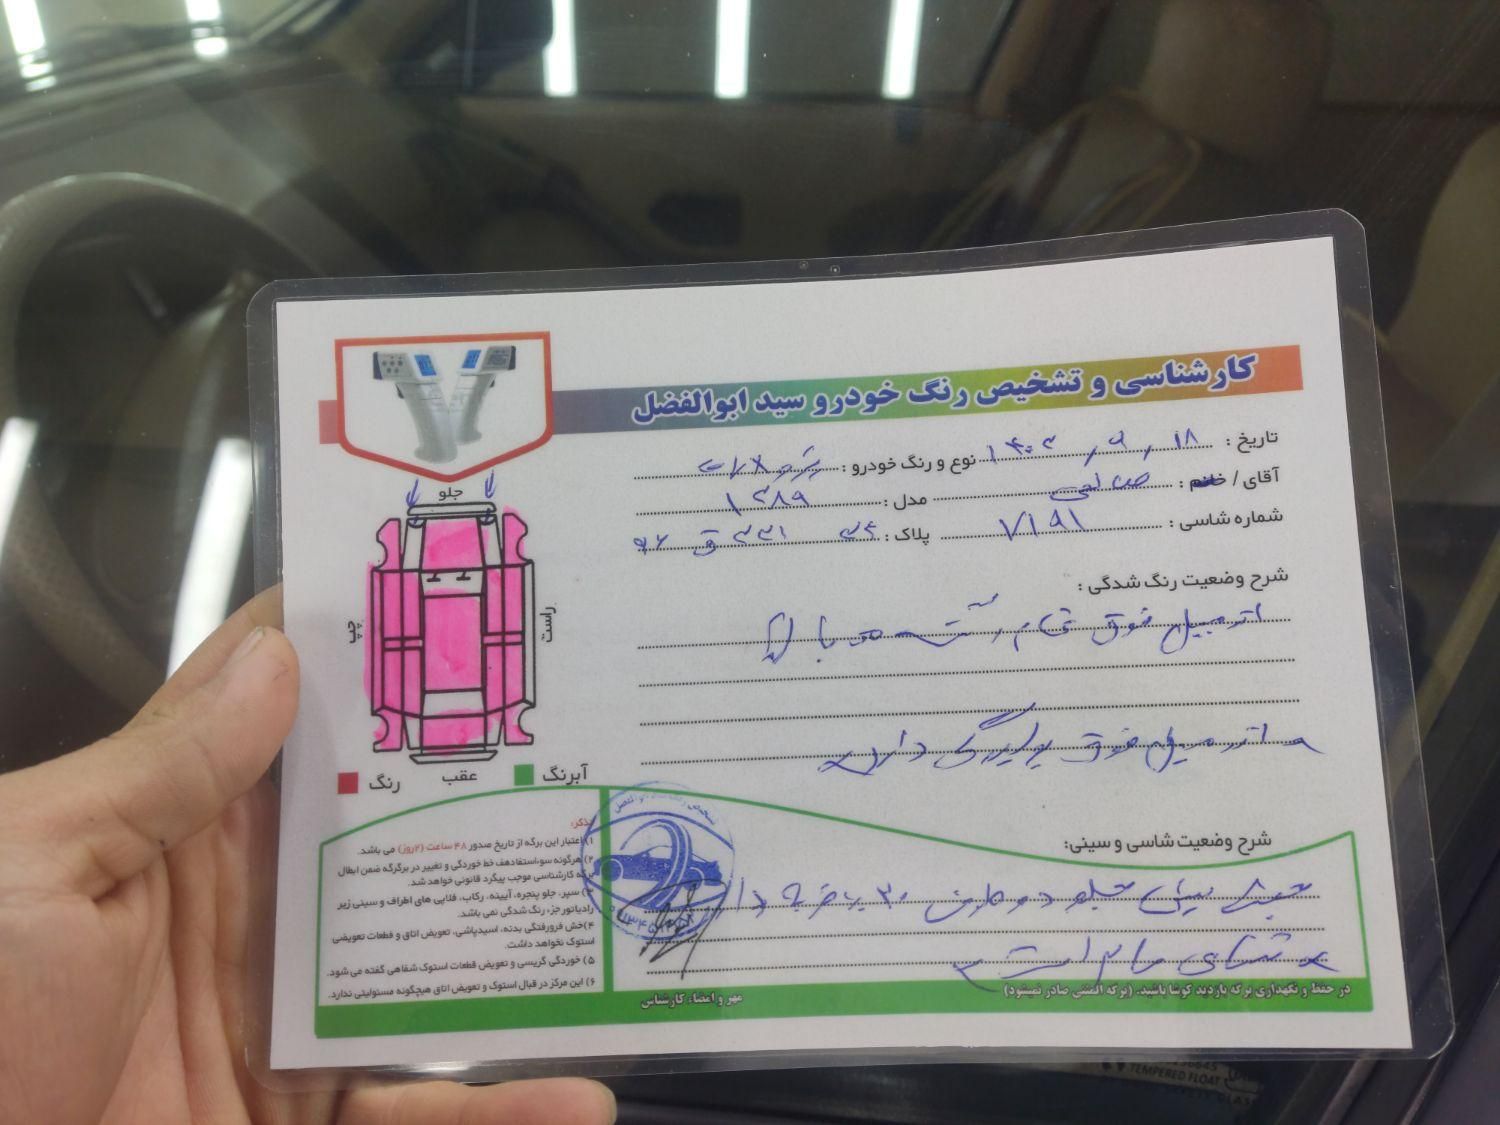 کارشناسی و تشخیص رنگ خودرو سید ابوالفضل
تاریخ : ۱۴۰۲/۹/۱۸ نوع و رنگ خودرو :
آقای / خانم : صالحی مدل : ۱۳۸۹
شماره شاسی : ۷۱۹۱ پلاک :
شرح وضعیت رنگ شدگی :
اتومبیل فوق تمام رنگ
اتومبیل فوق دارد
شرح وضعیت شاسی و سینی:
سینی جلو ضربه دارد
شاسی سالم است
در حفظ و نگهداری برگه بازدید کوشا باشید. (برگه المثنی صادر نمیشود)
مهر و امضاء کارشناس
جلو
چپ
راست
عقب
آبرنگ
رنگ
تذکر:
۱) اعتبار این برگه از تاریخ صدور ۴۸ ساعت (۲روز) می باشد.
۲) هرگونه سوءاستفادهف خط خوردگی و تغییر در برگرگه ضمن ابطال
برگه کارشناسی موجب پیگرد قانونی خواهد شد.
۳) سپر، جلو پنجره، آیینه، رکاب، قلابی های اطراف و سینی زیر
رادیاتور جزء رنگ شدگی نمی باشد.
۴)خش فرورفتگی بدنه، اسیدپاشی، تعویض اتاق و قطعات تعویضی
استوک نخواهد داشت.
۵) خوردگی گریسی و تعویض قطعات استوک شفاهی گفته می شود.
۶) این مرکز در قبال استوک و تعویض اتاق هیچگونه مسئولیتی ندارد.
TEMPERED FLOAT